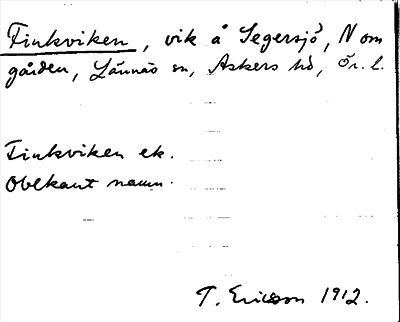 Finkviken, vik å Segersjö, N om
gården, Lännäs sn, Askers hd, Ör. l.
Finkviken ek.
Obekant namn.
T. Ericson 1912.